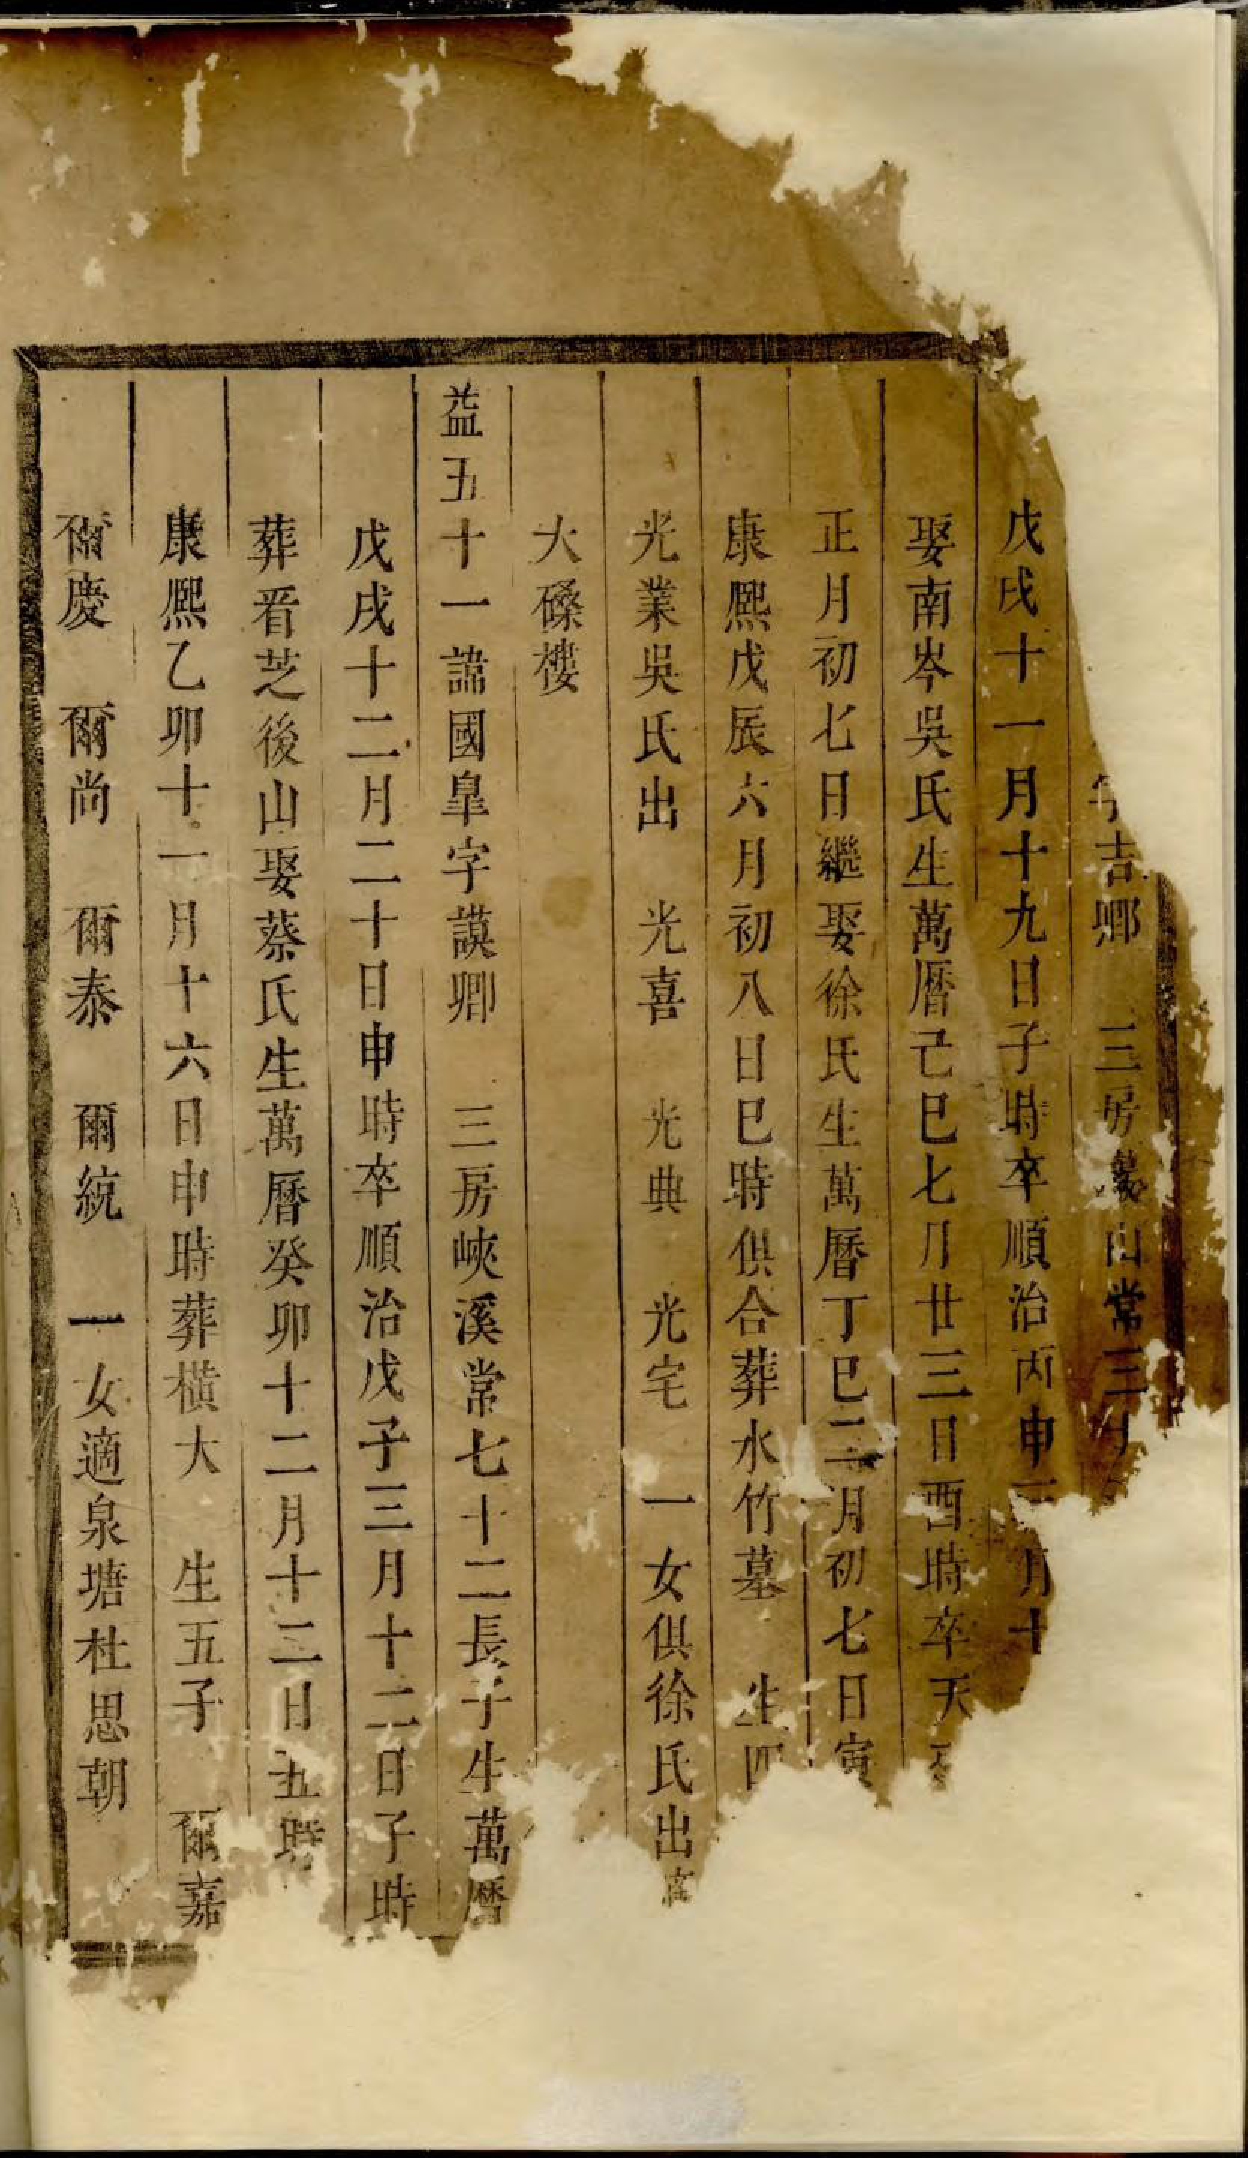 吉卿　三房　山常三
戊戌十一月十九日子時卒順治丙申　月十
娶南岑吳氏生萬曆己巳七月廿三日酉時卒天
正月初七日繼娶徐氏生萬曆丁巳二月初七日寅
康熙戊辰六月初八日巳時俱合葬水竹墓　生四
光業吳氏出　光喜　光典　光宅　一女俱徐氏出
大磉樓
益五十一諱國臯字謨卿　三房峽溪常七十二長子生萬曆
戊戌十二月二十日申時卒順治戊子三月十二日子時
葬晋芝後山娶蔡氏生萬曆癸卯十二月十二日五時
康熙乙卯十一月十六日申時葬橫大　生五子　爾嘉
爾慶　爾尚　爾泰　爾統　一女適泉塘杜思朝